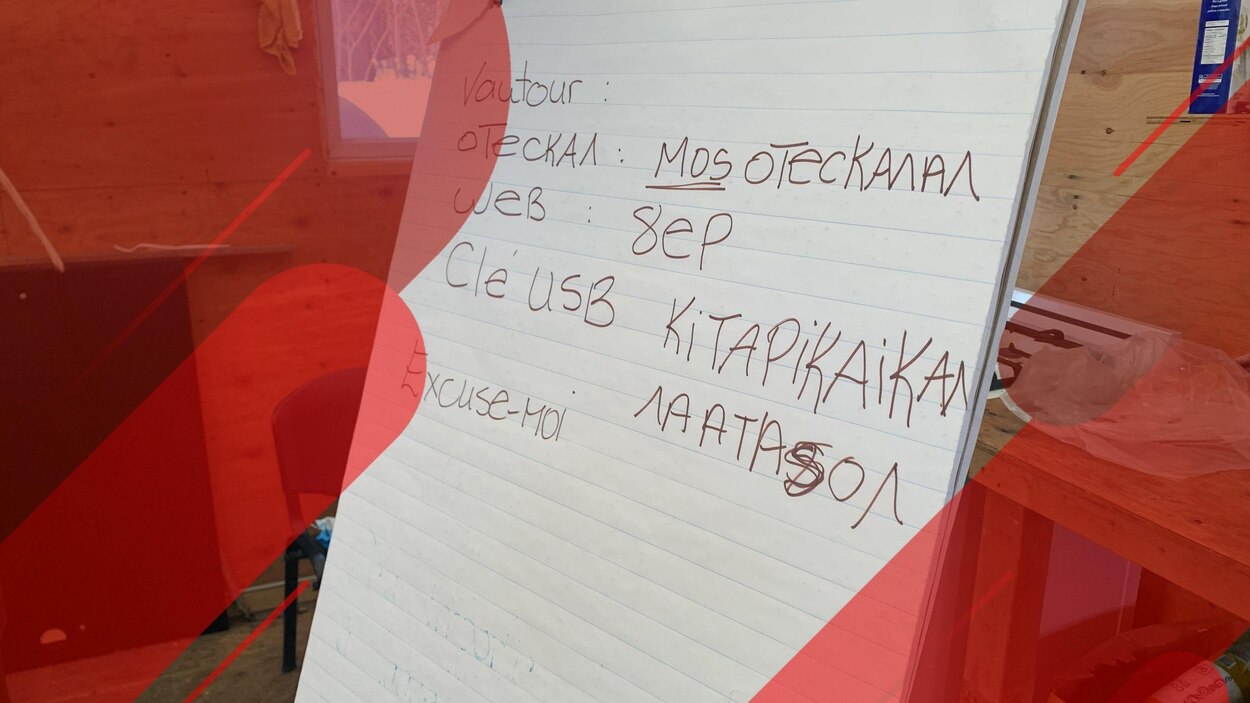 Vautour :
OTECKAΛ : MOS OTECKAΛAΛ
WEB : 8EP
Clé USB KiTAPiKAiKAΛ
Excuse-MOi ΛAATASOΛ